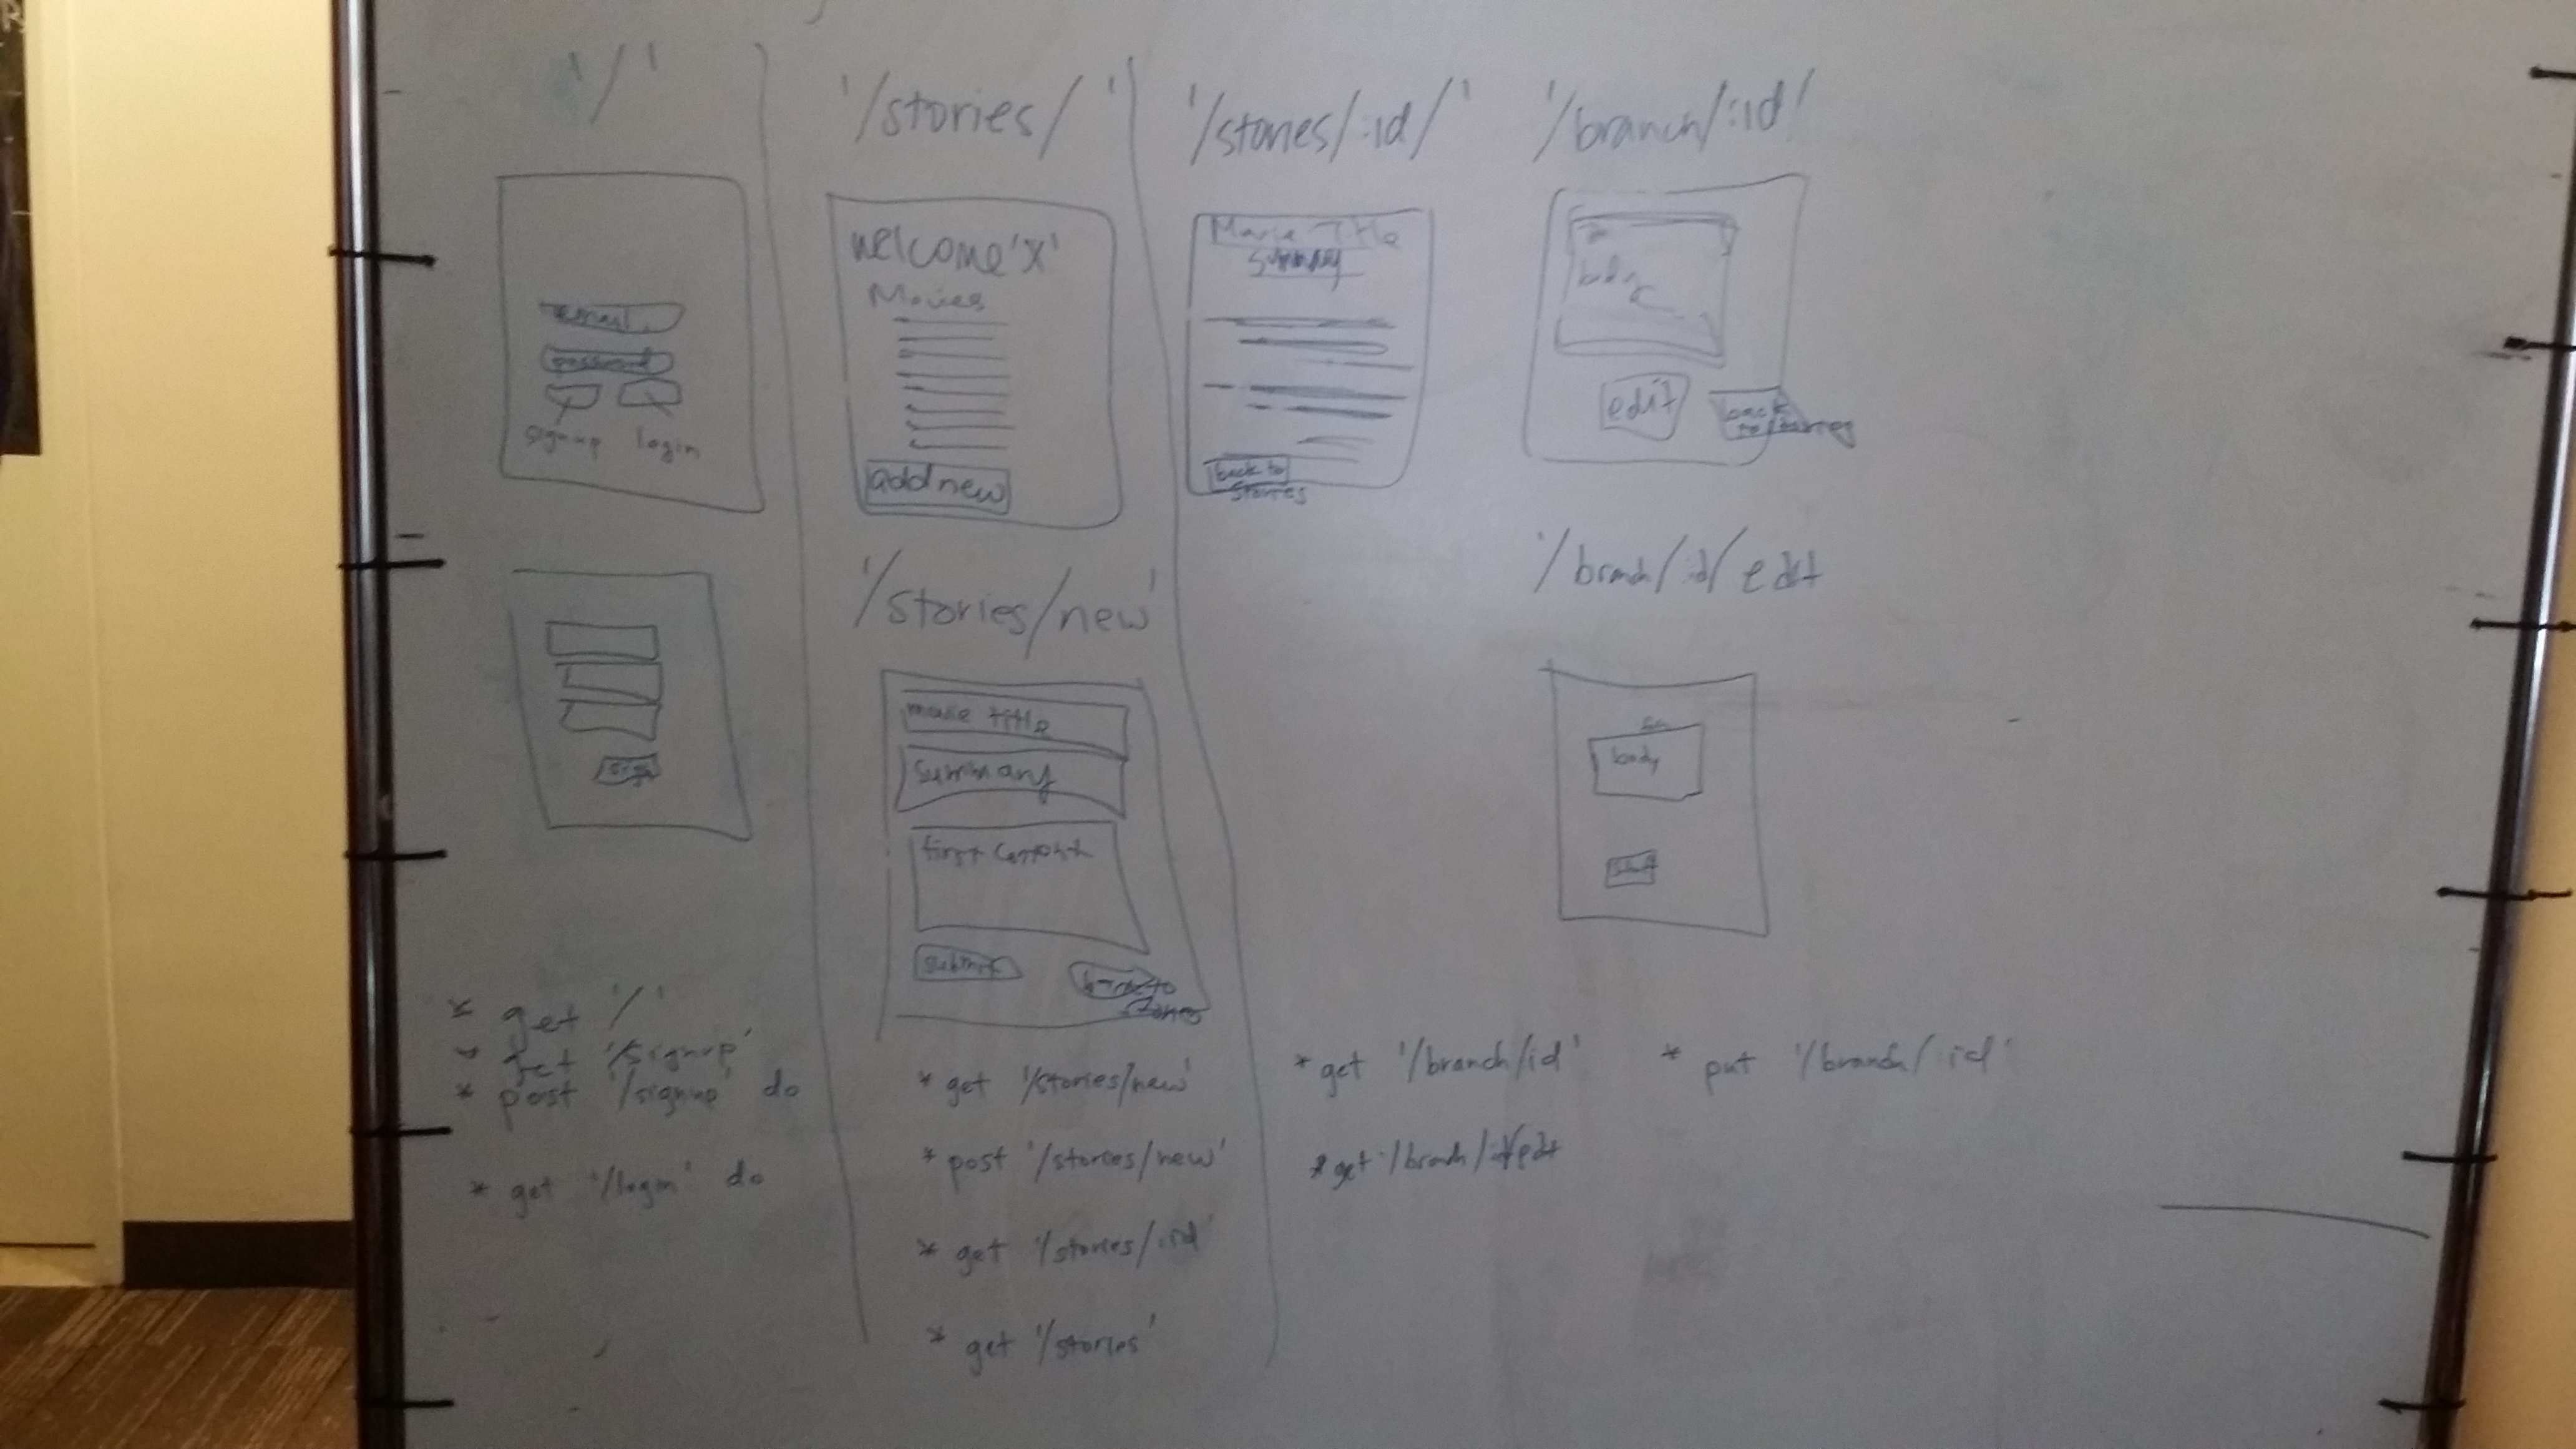 '/'
email
password
signup login
sign
* get '/'
* get '/signup'
* post '/signup' do
* get '/login' do
'/stories/'
welcome 'X'
Movies
add new
'/stories/new'
movie title
summary
first content
submit
back to
stories
* get '/stories/new'
* post '/stories/new'
* get '/stories/:id'
* get '/stories'
'/stories/:id/'
Movie Title
summary
back to
stories
'/branch/:id'
body
edit
back
to stories
'/branch/:id/edit
body
submit
* get '/branch/id'
* get '/branch/:id/edit
* put '/branch/:id'